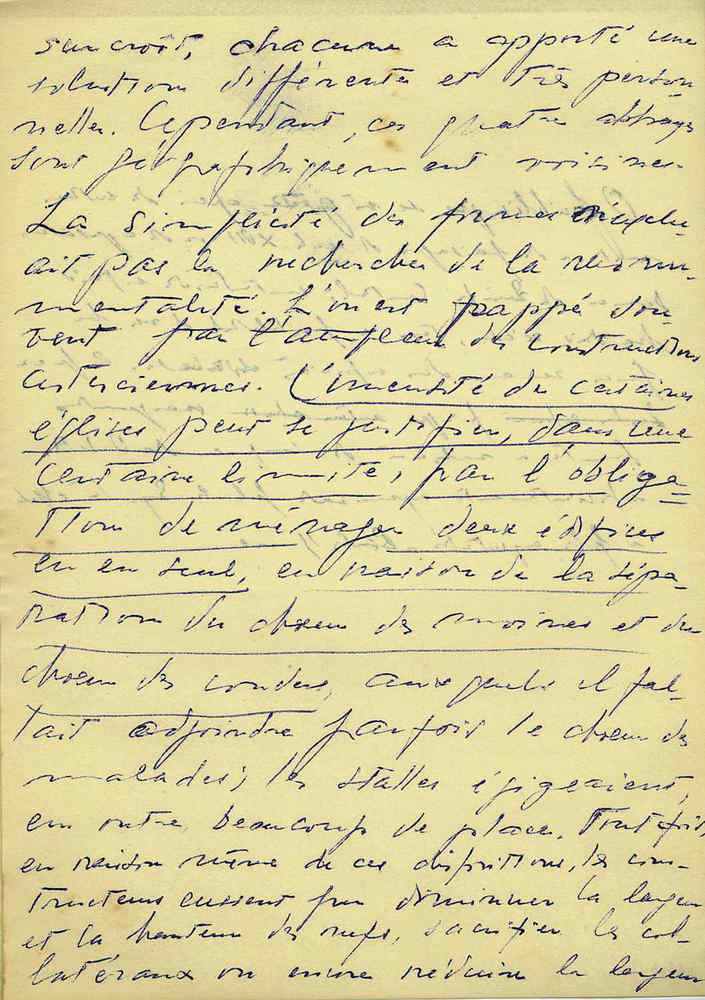 surcroît, chacune a apporté une
solution différente et très person-
nelle. Cependant, ces quatre abbayes
sont géographiquement voisines.
La simplicité des formes n'exclu-
ait pas la recherche de la monu-
mentalité. L'on est frappé sou-
vent par l'ampleur des constructions
cisterciennes. L'immensité de certaines
églises peut se justifier, dans une
certaine limite, par l'obliga-
tion de ménager deux édifices
en un seul, en raison de la sépa-
ration du chœur des moines et du
chœur des convers, auxquels il fal-
lait adjoindre parfois le chœur des
malades; les stalles exigeaient,
en outre, beaucoup de place. Toutefois,
en raison même de ces dispositions, les cons-
tructeurs eussent pu diminuer la largeur
et la hauteur des nefs, sacrifier les col-
latéraux ou encore réduire la largeur